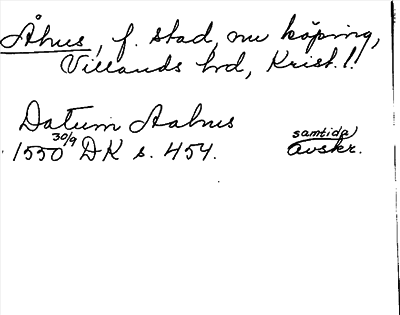 Åhus, f. stad, nu köping,
Villands hrd, Krist. l.
Datum Aahus
1550 30/9 DK s. 454. samtida
Avskr.